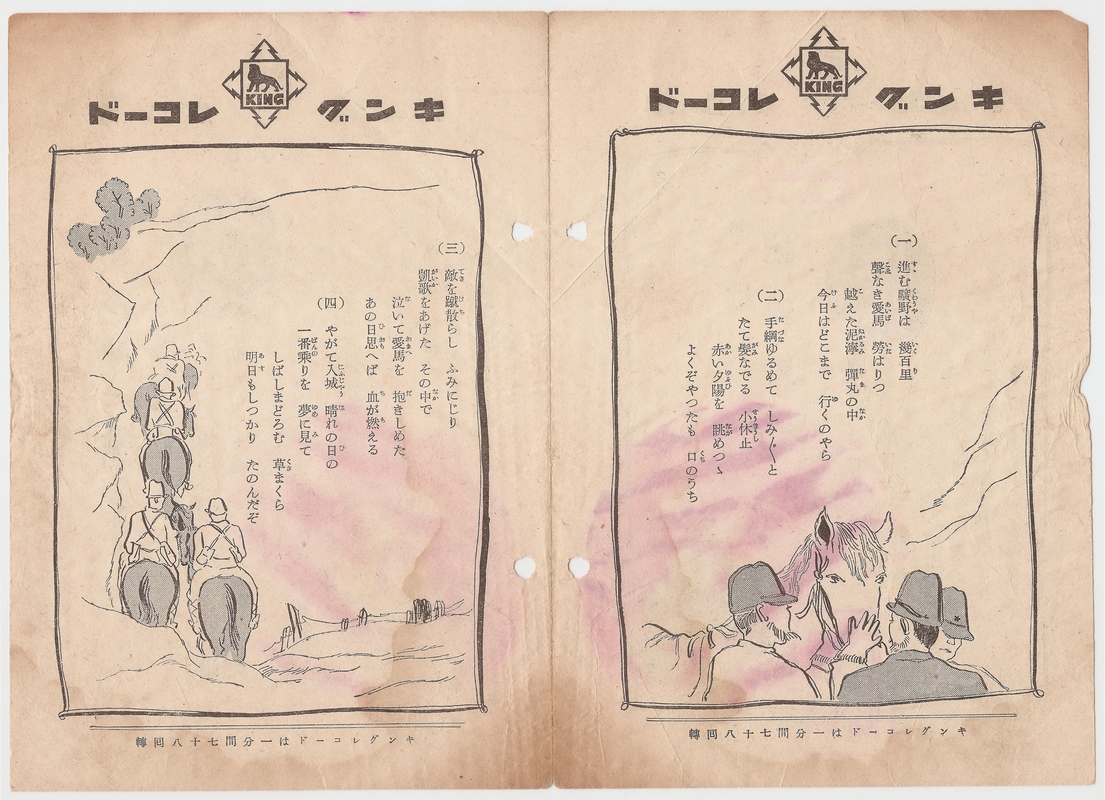 キング KING レコード
(一)
進む曠野は 幾百里
聲なき愛馬 勞はりつ
越えた泥濘 彈丸の中
今日はどこまで 行くのやら
(二) 手綱ゆるめて しみ〴〵と
たて髮なでる 小休止
赤い夕陽を 眺めつゝ
よくぞやつたも 口のうち
キングレコードは一分間七十八回轉
キング KING レコード
(三)
敵を蹴散らし ふみにじり
凱歌をあげた その中で
泣いて愛馬を 抱きしめた
あの日思へば 血が燃える
(四) やがて入城 晴れの日の
一番乘りを 夢に見て
しばしまどろむ 草まくら
明日もしつかり たのんだぞ
キングレコードは一分間七十八回轉